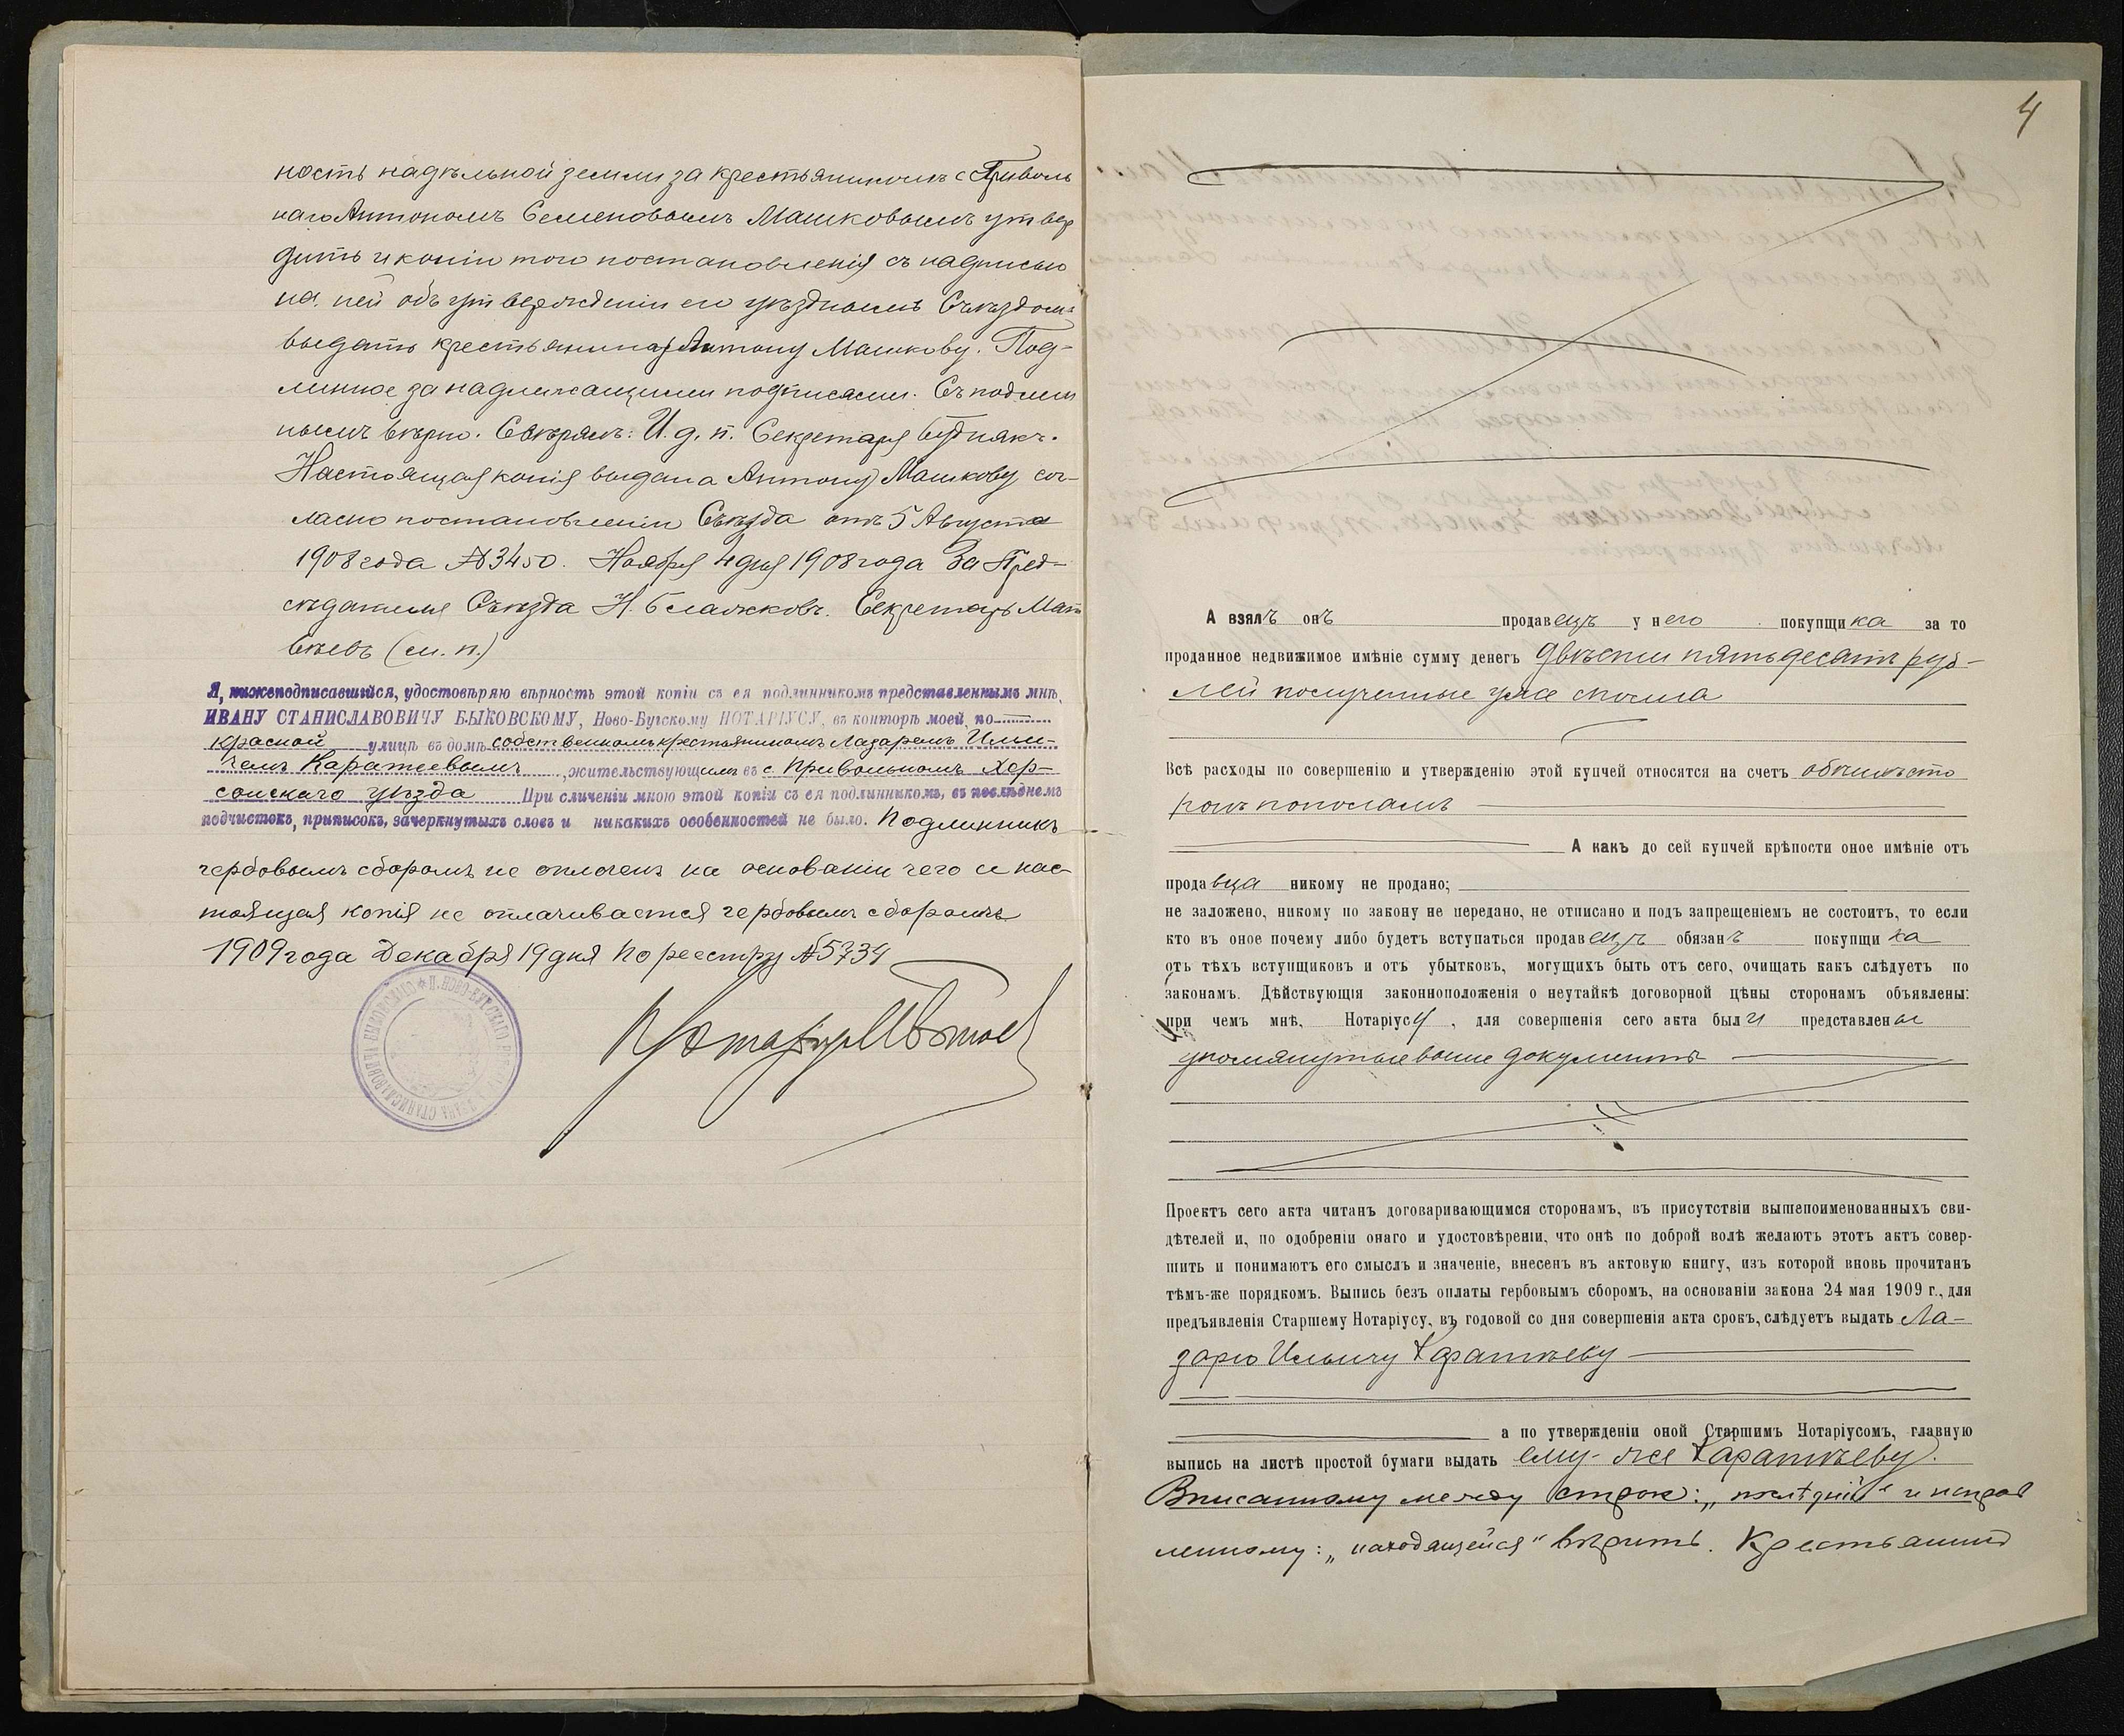 ность надѣльной земли за крестьяниномъ с Приволь
наго Антономъ Семеновымъ Машковымъ утвер
дить и копіи того постановленія съ надписью
на ней объ утвержденіи его уѣзднымъ Съѣздомъ
выдать крестьянину Антону Машкову. Под-
линное за надлежащими подписями. Съ подлин
нымъ вѣрно. Свѣрялъ: И. д. п. Секретаря Будняк.
Настоящая копія выдана Антону Машкову сог-
ласно постановленіи Съѣзда отъ 5 Августа
1908 года № 3450. Ноября 4 дня 1908 года За Пред-
сѣдателя Съѣзда Н. Секретарь Мат
вѣевъ (м. п.)
Я, нижеподписавшійся, удостовѣряю вѣрность этой копіи съ ея подлинникомъ представленнымъ мнѣ,
ИВАНУ СТАНИСЛАВОВИЧУ БЫКОВСКОМУ, Ново-Бугскому НОТАРІУСУ, въ конторѣ моей, по
красной улицѣ въ домѣ собственномъ крестьяниномъ Лазаремъ Ильи-
чемъ Каратеевымъ, жительствующимъ въ с Привольномъ Хер-
сонскаго уѣзда При сличеніи мною этой копіи съ ея подлинникомъ, въ послѣднемъ
подчистокъ, приписокъ, зачеркнутыхъ словъ и никакихъ особенностей не было. Подлинникъ
гербовымъ сборомъ не оплоченъ на основаніи чего и нас-
тоящая копія не оплачивается гербовымъ сборомъ
1909 года Декабря 19 дня По реестру № 5734
Нотаріусъ
4
А взялъ онъ продавецъ у него покупщика за то
проданное недвижимое имѣніе сумму денегъ двѣсти пятьдесятъ руб-
лей полученные уже сполна
Всѣ расходы по совершенію и утвержденію этой купчей относятся на счетъ обѣихъ сто
ронъ пополамъ
А какъ до сей купчей крѣпости оное имѣніе отъ
продавца никому не продано;
не заложено, никому по закону не передано, не отписано и подъ запрещеніемъ не состоитъ, то если
кто въ оное почему либо будетъ вступаться продавецъ обязанъ покупщика
отъ тѣхъ вступщиковъ и отъ убытковъ, могущихъ быть отъ сего, очищать какъ слѣдуетъ по
законамъ. Дѣйствующія законноположенія о неутайкѣ договорной цѣны сторонамъ объявлены:
при чемъ мнѣ, Нотаріусу, для совершенія сего акта были представлены
упомянутые выше документы
Проектъ сего акта читанъ договаривающимся сторонамъ, въ присутствіи вышепоименованныхъ сви-
дѣтелей и, по одобреніи онаго и удостовѣреніи, что онѣ по доброй волѣ желаютъ этотъ актъ совер-
шить и понимаютъ его смыслъ и значеніе, внесенъ въ актовую книгу, изъ которой вновь прочитанъ
тѣмъ-же порядкомъ. Выпись безъ оплаты гербовымъ сборомъ, на основаніи закона 24 мая 1909 г., для
предъявленія Старшему Нотаріусу, въ годовой со дня совершенія акта срокъ, слѣдуетъ выдать Ла-
зарю Ильичу Каратѣеву
а по утвержденіи оной Старшимъ Нотаріусомъ, главную
выпись на листѣ простой бумаги выдать ему-же Каратѣеву.
Вписанному между строк: „послѣдній" и исправ
ленному: „находящейся" вѣрить. Крестьянинъ